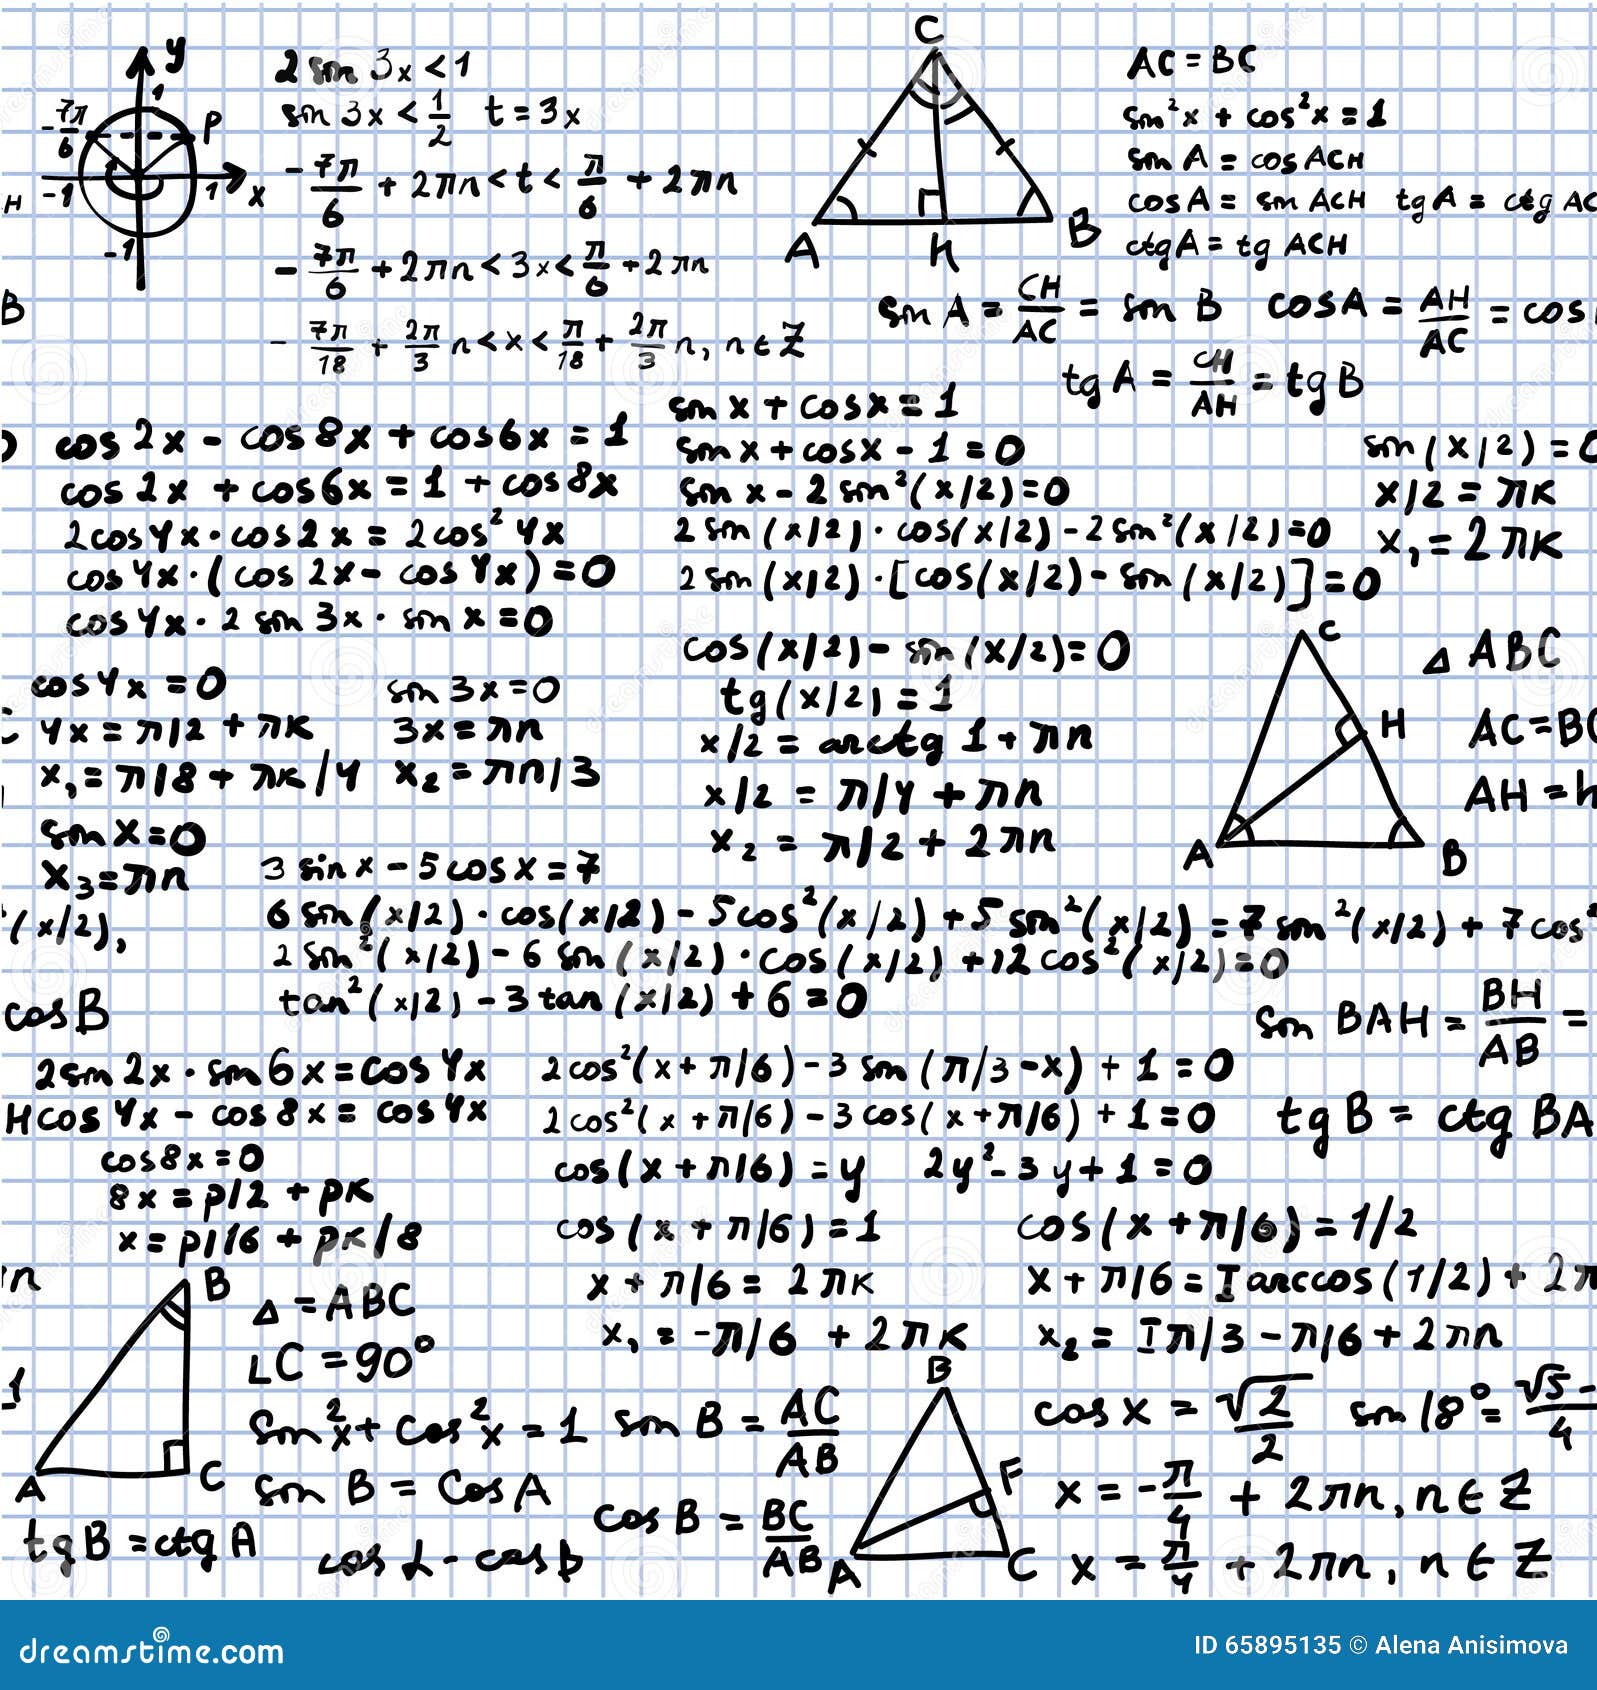 y
1
-7π/6
P
-1
1
x
-1
H
B
2 sin 3x < 1
sin 3x < 1/2 t = 3x
- 7π/6 + 2πn < t < π/6 + 2πn
- 7π/6 + 2πn < 3x < π/6 + 2πn
- 7π/18 + 2π/3 n < x < π/18 + 2π/3 n, n ∈ Z
C
A
h
B
AC = BC
sin²x + cos²x = 1
sin A = cos ACH
cos A = sin ACH tg A = ctg AC
ctg A = tg ACH
sin A = CH/AC = sin B cos A = AH/AC = cos
tg A = CH/AH = tg B
cos 2x - cos 8x + cos 6x = 1
cos 2x + cos 6x = 1 + cos 8x
2 cos 4x · cos 2x = 2 cos² 4x
cos 4x · (cos 2x - cos 4x) = 0
cos 4x · 2 sin 3x · sin x = 0
cos 4x = 0 sin 3x = 0
4x = π/2 + πк 3x = πn
x₁ = π/8 + πк/4 x₂ = πn/3
sin x = 0
x₃ = πn
sin x + cos x = 1
sin x + cos x - 1 = 0
sin x - 2 sin²(x/2) = 0
2 sin (x/2) · cos(x/2) - 2 sin²(x/2) = 0
2 sin (x/2) · [cos(x/2) - sin (x/2)] = 0
cos(x/2) - sin (x/2) = 0
tg(x/2) = 1
x/2 = arctg 1 + πn
x/2 = π/4 + πn
x₂ = π/2 + 2πn
sin(x/2) = 0
x/2 = πк
x₁ = 2πк
C
H
A
B
△ ABC
AC = BC
AH = h
(x/2),
cos B
3 sin x - 5 cos x = 7
6 sin (x/2) · cos(x/2) - 5 cos²(x/2) + 5 sin²(x/2) = 7 sin²(x/2) + 7 cos²
2 sin²(x/2) - 6 sin (x/2) · cos (x/2) + 12 cos²(x/2) = 0
tan²(x/2) - 3 tan (x/2) + 6 = 0
sin BAH = BH/AB =
tg B = ctg BA
2 sin 2x · sin 6x = cos 4x
H cos 4x - cos 8x = cos 4x
cos 8x = 0
8x = p/2 + pк
x = p/16 + pк/8
2 cos²(x + π/6) - 3 sin (π/3 - x) + 1 = 0
2 cos²(x + π/6) - 3 cos(x + π/6) + 1 = 0
cos(x + π/6) = y 2y² - 3y + 1 = 0
cos (x + π/6) = 1 cos(x + π/6) = 1/2
x + π/6 = 2πк x + π/6 = I arccos(1/2) + 2π
x₁ = -π/6 + 2πк x₂ = Iπ/3 - π/6 + 2πn
n
B
A
C
△ = ABC
∠C = 90°
sin²x + cos²x = 1 sin B = AC/AB
sin B = cos A
cos B = BC/AB
tg B = ctg A
cos α - cos β
B
F
A
C
cos x = √2/2 sin 18° = √5 -/4
x = - π/4 + 2πn, n ∈ Z
x = π/4 + 2πn, n ∈ Z
dreamstime.com
ID 65895135 © Alena Anisimova